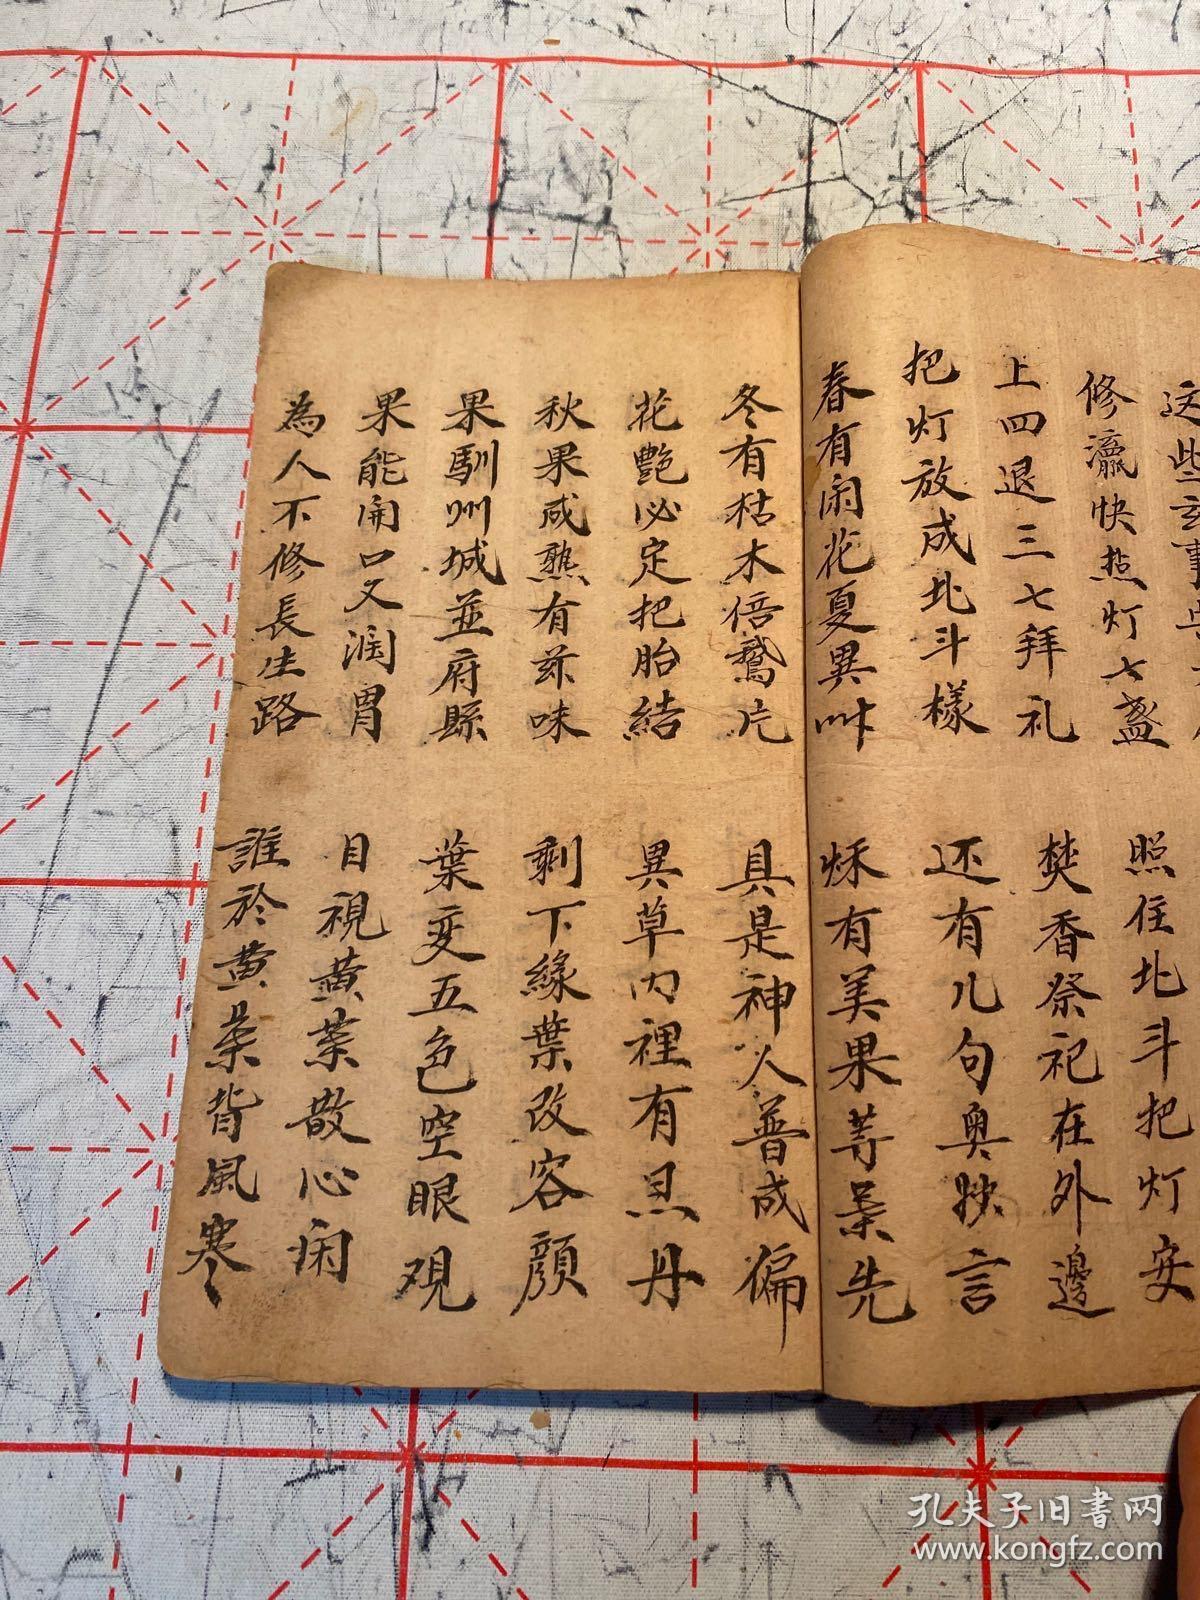 这些玄事
照住北斗把灯安
修瀛快点灯七盏
焚香祭祀在外邊
上四退三七拜礼
还有儿句奥妙言
把灯放成北斗樣
秌有美果等葉先
春有闲花夏異草
具是神人普成偏
冬有枯木倍鵞片
異草內裡有旦丹
花艷必定把胎結
剩下緣葉改容顔
秋果成熟有茶味
葉变五色空眼观
果馴州城並府縣
目視黄葉散心闲
果能開口又润胃
誰於黄葉背風寒
為人不修長生路
孔夫子旧書网
www.kongfz.com